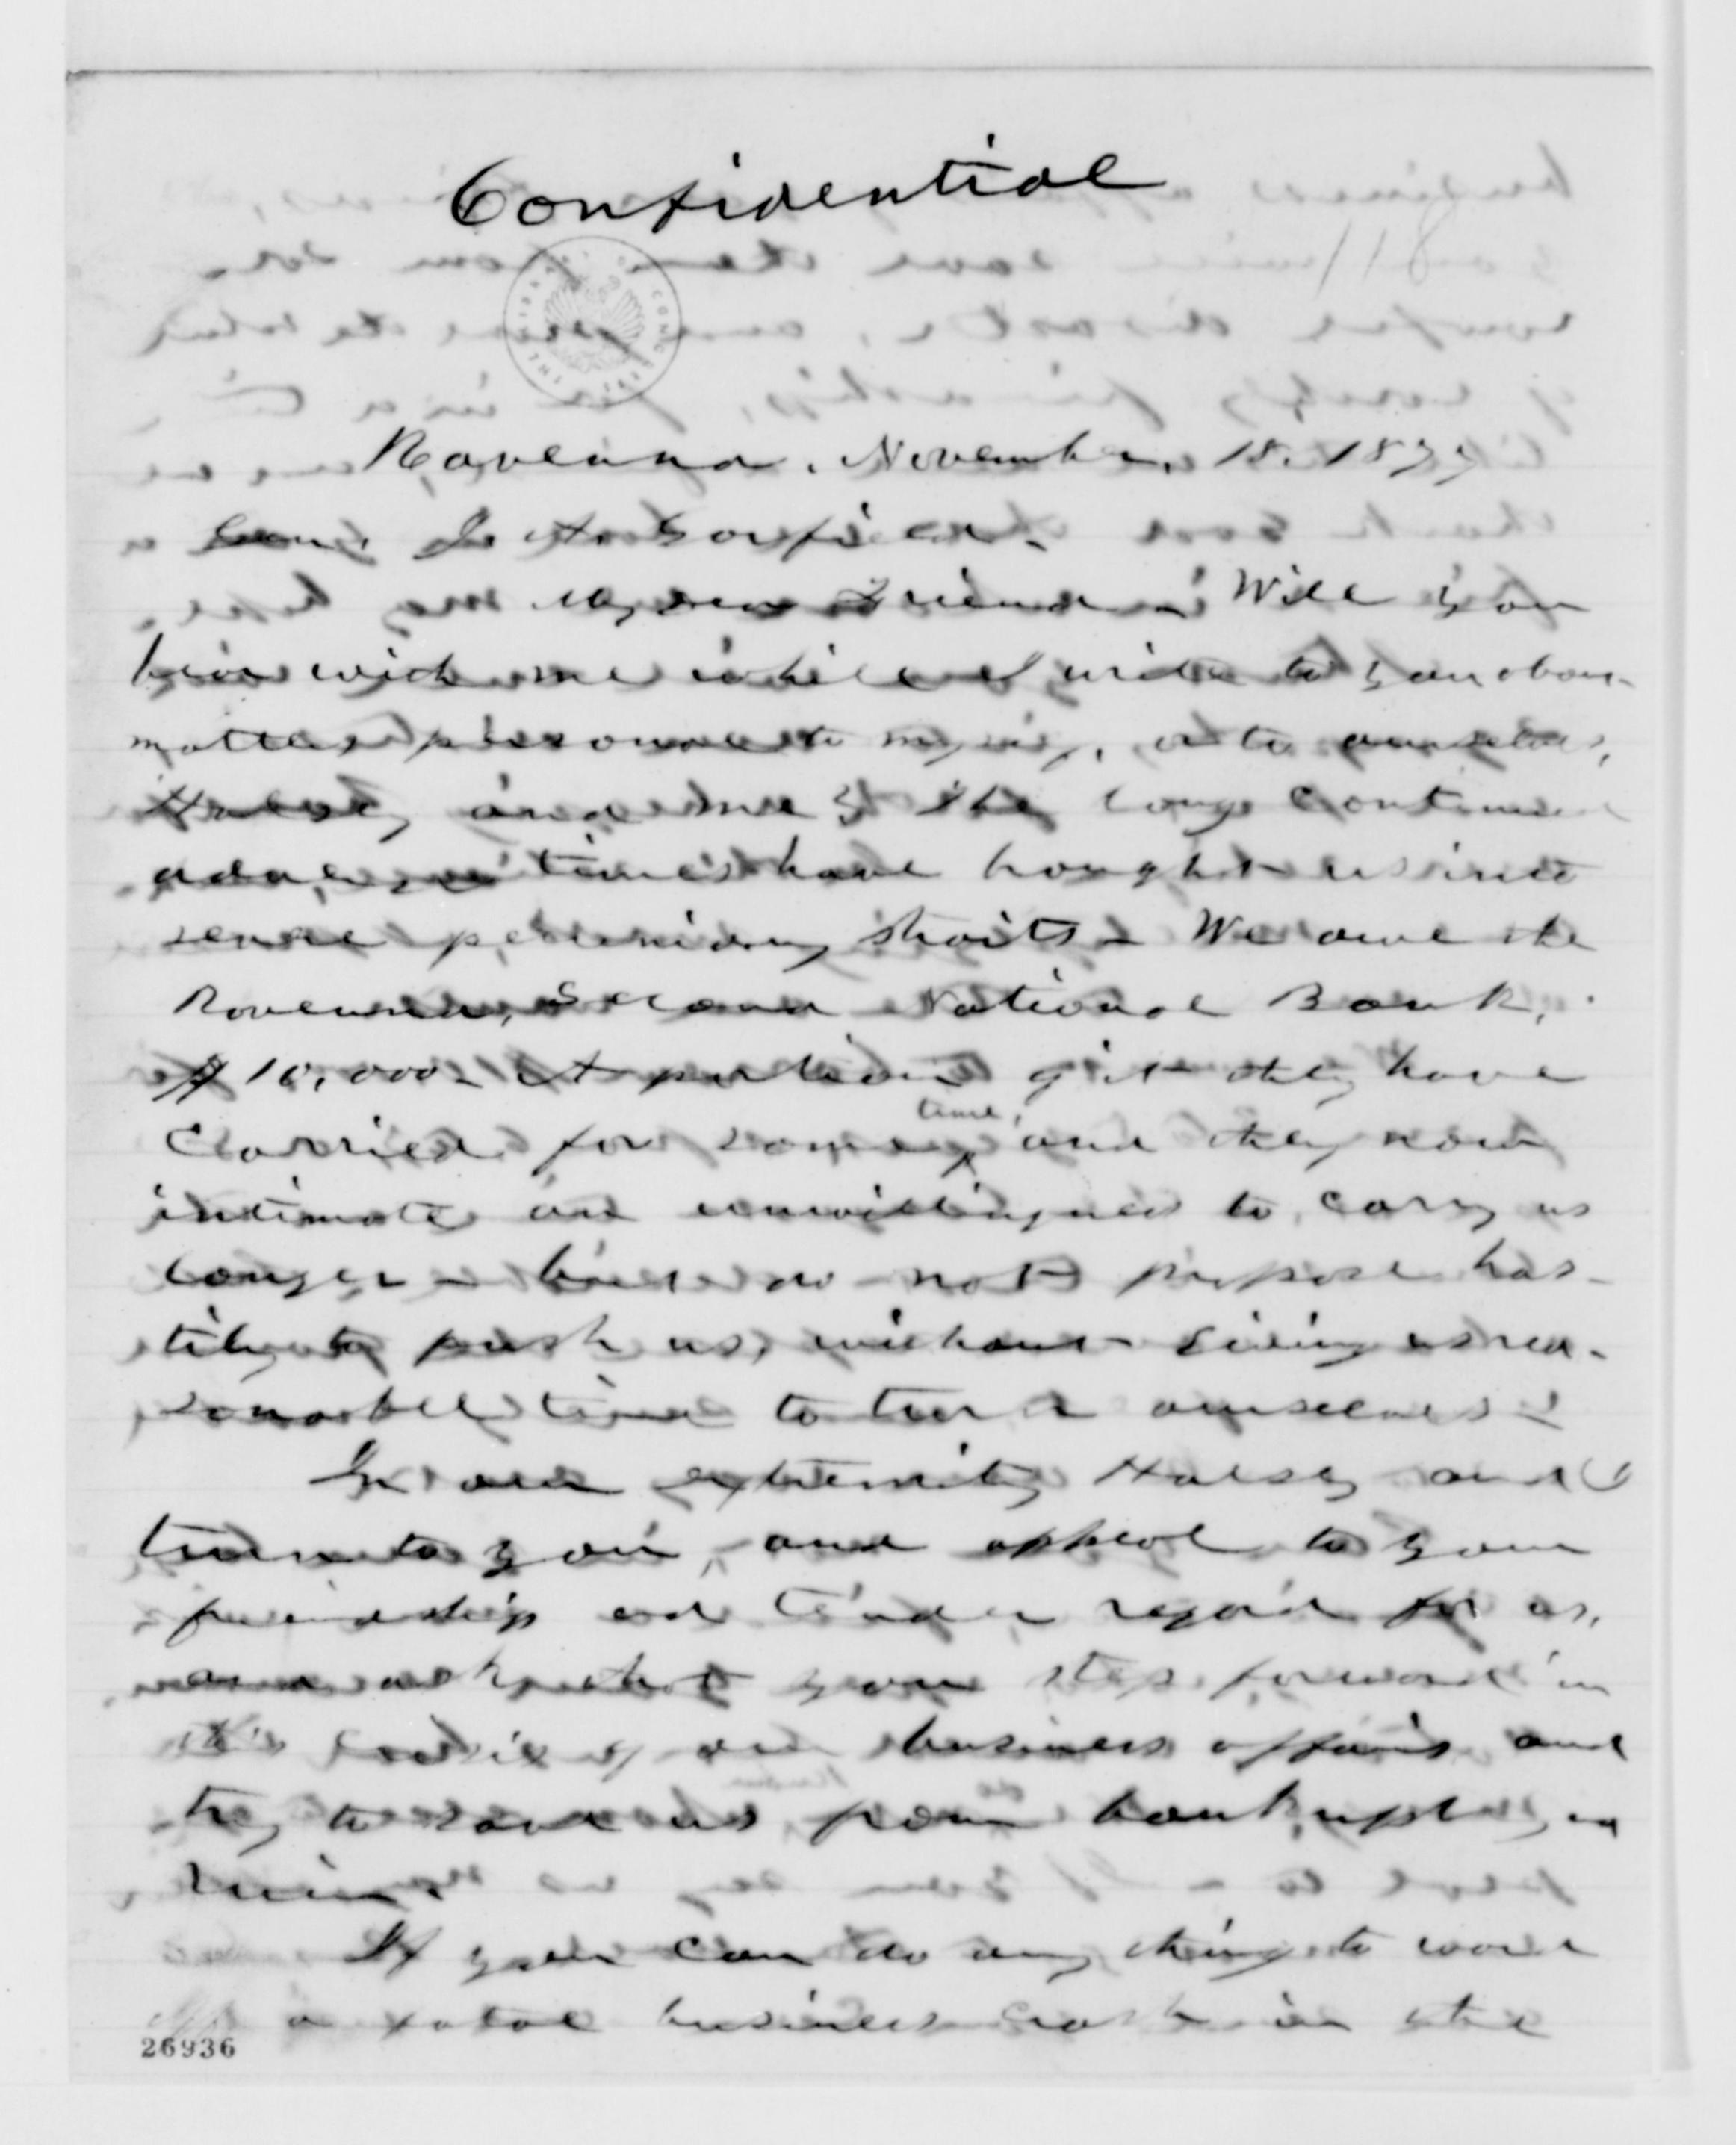 Confidential
THE LIBRARY OF CONGRESS
Ravenna. November. 18. 1877
Genl. J A Garfield.
My Dear Friend - Will you
bear with me while I write to you about
matters personal to myself, or to ourselves,
Halsey and me - The long continued
adverse times have brought us into
severe pecuniary straits - We owe the
Ravenna, Second National Bank,
$10,000 - A portion of it they have
carried for some time, and they now
intimate an unwillingness to carry us
longer - but do not propose has-
tily to push us, without giving us rea-
sonable time to turn ourselves -
In our extremity Halsey and I
turn to you, and appeal to your
friendship and tender regard for us,
and ask that you step forward in
this crisis of our business affairs and
try to save us from bankruptcy and
ruin.
If you can do any thing to ward
off a total business crash in the
26936